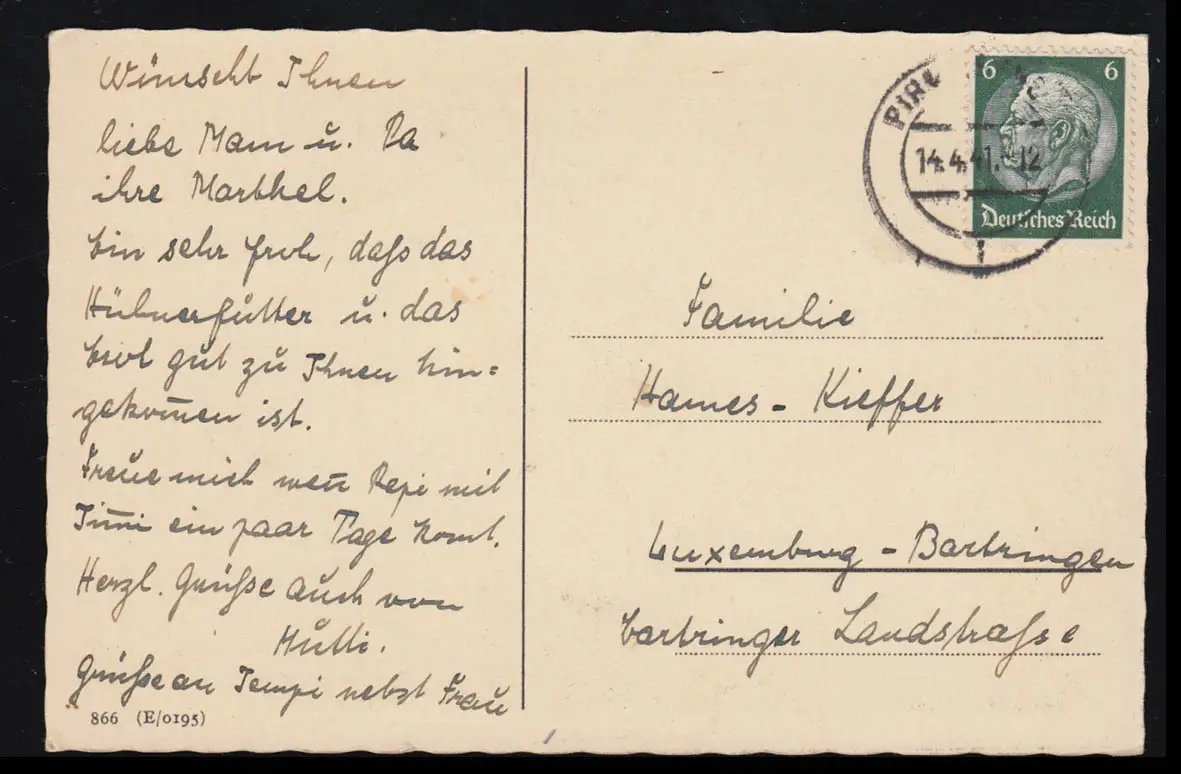 Wünscht Ihnen
liebe Mam u. Pa
ihre Marthel.
bin sehr froh, daß das
Hühnerfutter u. das
Brot gut zu Ihnen hin=
gekom̅en ist.
Freue mich wen̅ Pepi mit
Jim̅i ein paar Tage komt.
Herzl. Grüße auch von
Mutti.
Grüße an Jempi nebst Frau
866 (E/0195)
PIR
14.4.41. 12
6 6
Deutsches Reich
Familie
Hames - Kieffer
Luxemburg - Bartringen
Bartringer Landstraße